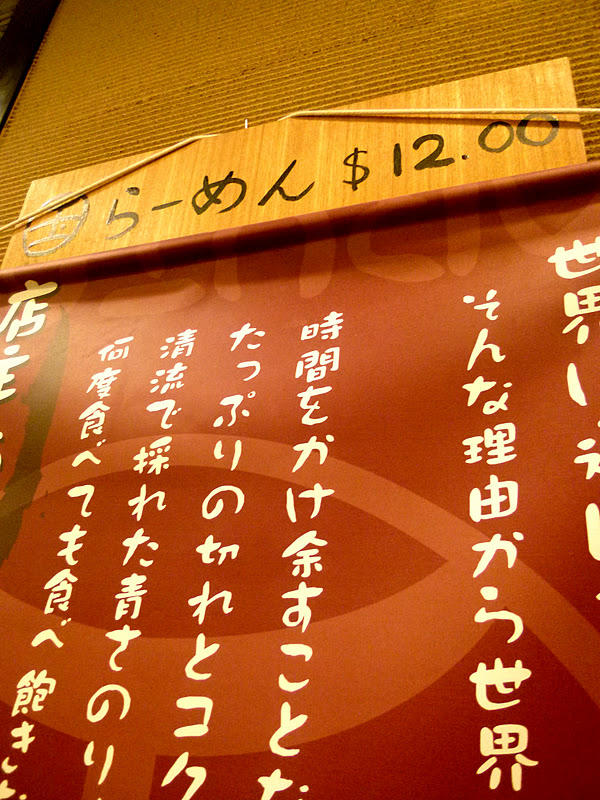 らーめん $12.00
世界に
そんな理由から世界で
時間をかけ余すことな
たっぷりの切れとコク
清流で採れた青さのり
何度食べても食べ飽きな
店主